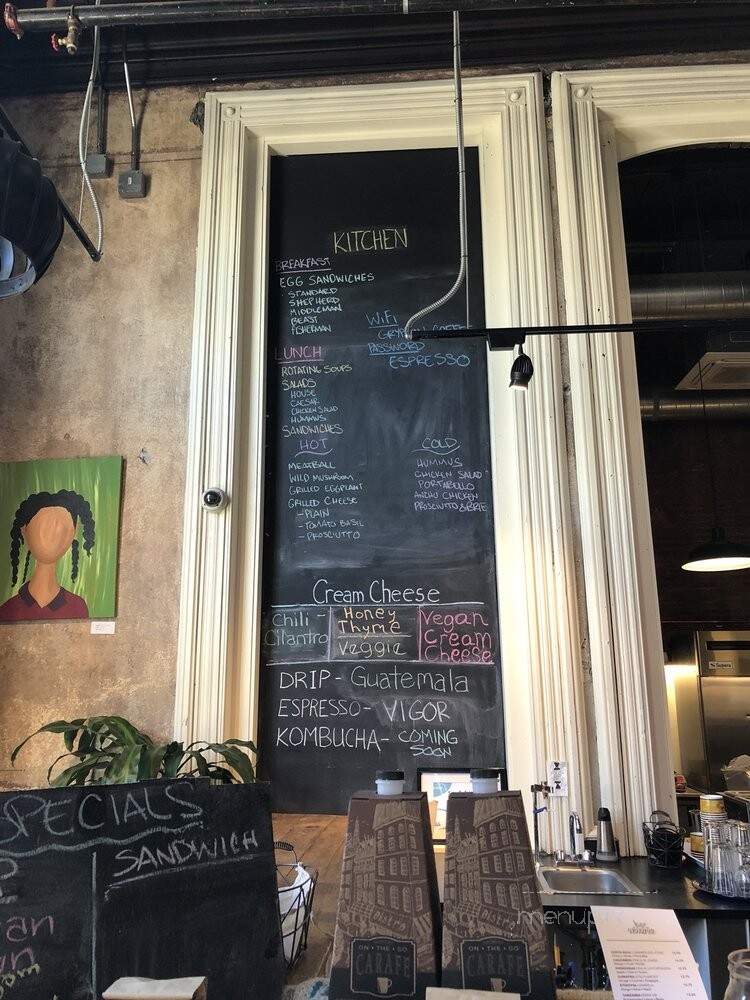 KITCHEN
BREAKFAST
EGG SANDWICHES
STANDARD
SHEPHERD
MIDDLEMAN
BEAST
FISHERMAN
WiFi
COFFEE
PASSWORD
ESPRESSO
LUNCH
ROTATING SOUPS
SALADS
HOUSE
CAESAR
CHICKEN SALAD
HUMMUS
SANDWICHES
HOT
MEATBALL
WILD MUSHROOM
GRILLED EGGPLANT
GRILLED CHEESE
- PLAIN
- TOMATO BASIL
- PROSCIUTTO
COLD
HUMMUS
CHICKEN SALAD
PORTABELLO
CHICKEN
PROSCIUTTO & BRIE
Cream Cheese
Chili -
Cilantro
Honey
Thyme
Veggie
Vegan
Cream
Cheese
DRIP - Guatemala
ESPRESSO - VIGOR
KOMBUCHA - COMING
SOON
SPECIALS
SANDWICH
ON • THE • GO
CARAFE
ON • THE • GO
CARAFE
menupix